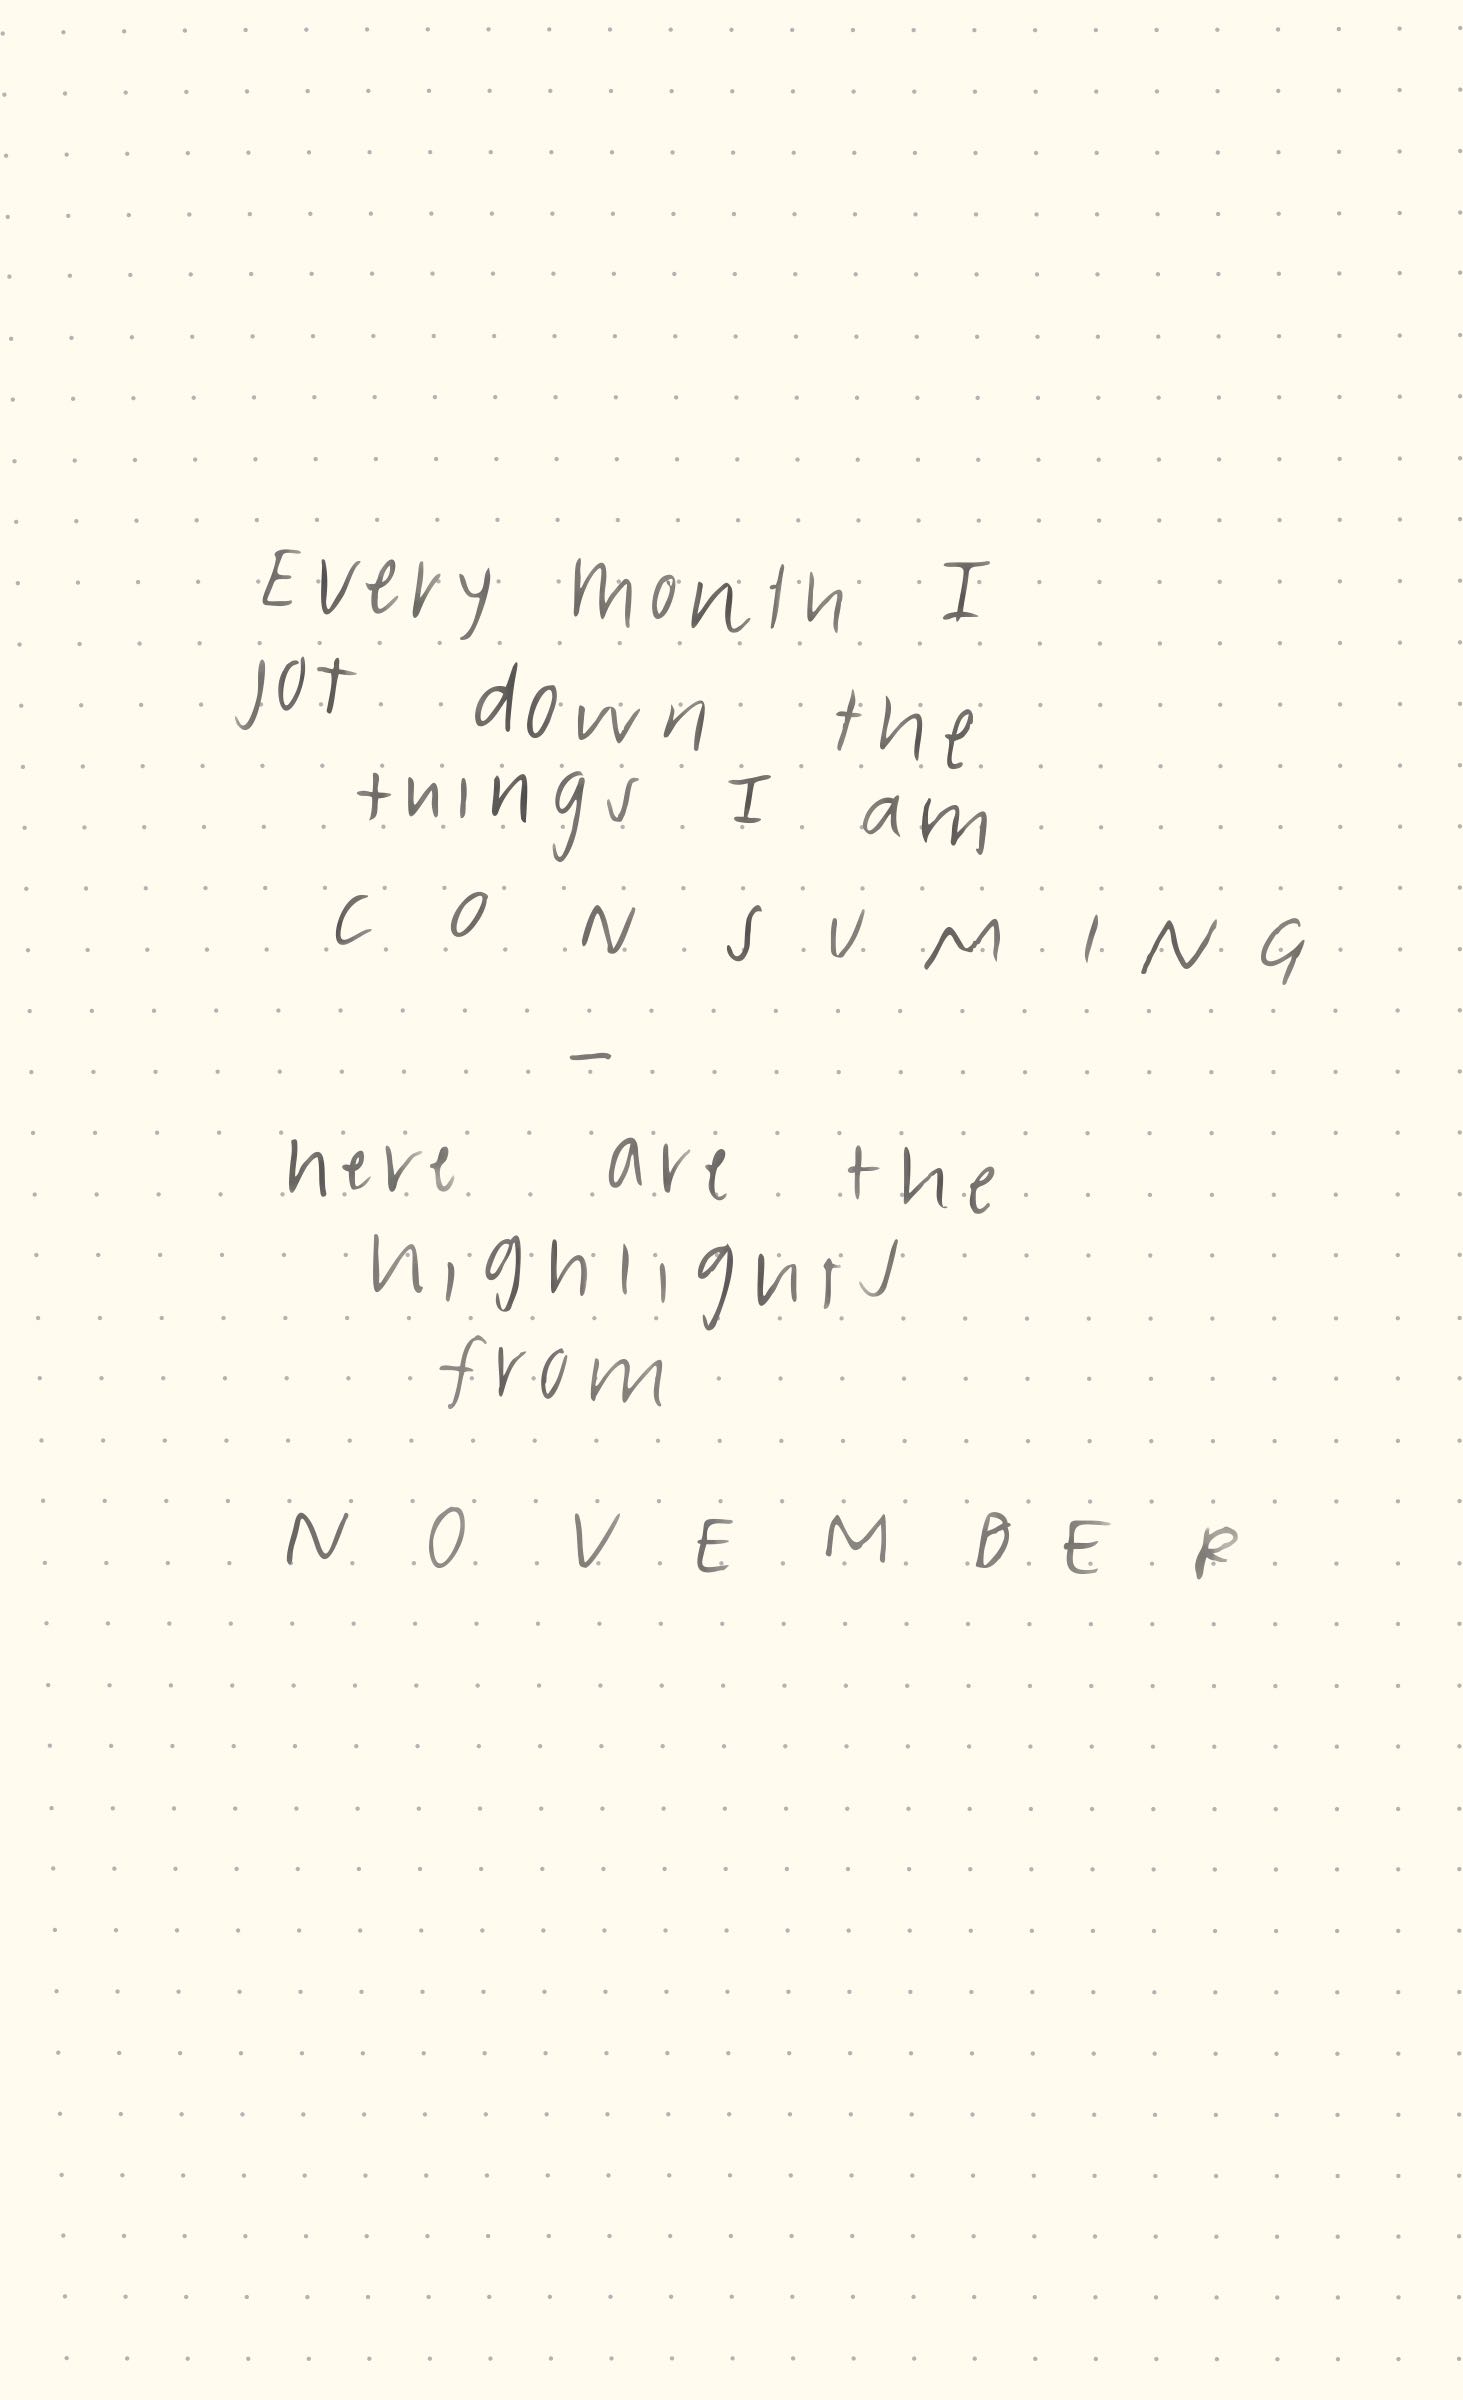 Every month I
jot down the
things I am
C O N S U M I N G
—
here are the
highlights
from
N O V E M B E R